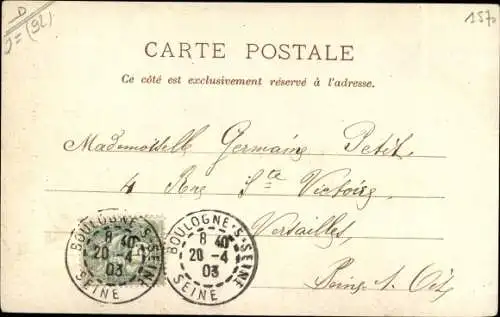 D
J=(92)
1570
CARTE POSTALE
Ce côté est exclusivement réservé à l'adresse.
Mademoiselle Germaine Petit
4 Rue Ste Victoire
Versailles,
Seine-&-Oise
BOULOGNE-S-SEINE
8 40
20 -4
03
SEINE
BOULOGNE-S-SEINE
8 40
20 -4
03
SEINE